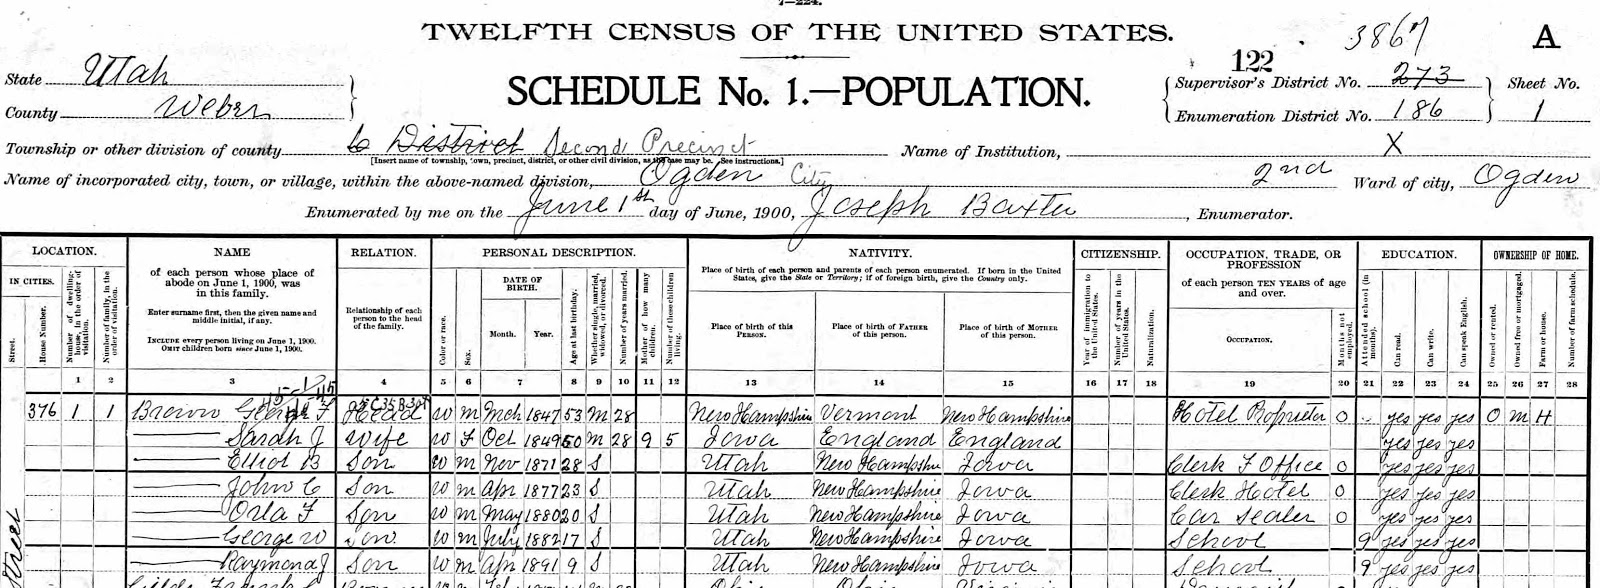 7—224.
TWELFTH CENSUS OF THE UNITED STATES.
3867
A
SCHEDULE No. 1.—POPULATION.
State Utah
County Weber
122
Supervisor's District No. 273
Enumeration District No. 186
Sheet No.
1
Township or other division of county 6 District Second Precinct
[Insert name of township, town, precinct, district, or other civil division, as the case may be. See instructions.]
Name of Institution, X
Name of incorporated city, town, or village, within the above-named division, Ogden City
2nd Ward of city, Ogden
Enumerated by me on the June 1st day of June, 1900, Joseph Baxter, Enumerator.
LOCATION.
IN CITIES.
Street.
House Number.
Number of dwelling-house, in the order of visitation.
Number of family, in the order of visitation.
NAME
of each person whose place of abode on June 1, 1900, was in this family.
Enter surname first, then the given name and middle initial, if any.
INCLUDE every person living on June 1, 1900.
OMIT children born since June 1, 1900.
RELATION.
Relationship of each person to the head of the family.
PERSONAL DESCRIPTION.
Color or race.
Sex.
DATE OF BIRTH.
Month. Year.
Age at last birthday.
Whether single, married, widowed, or divorced.
Number of years married.
Mother of how many children.
Number of these children living.
NATIVITY.
Place of birth of each person and parents of each person enumerated. If born in the United States, give the State or Territory; if of foreign birth, give the Country only.
Place of birth of this PERSON.
Place of birth of FATHER of this person.
Place of birth of MOTHER of this person.
CITIZENSHIP.
Year of immigration to the United States.
Number of years in the United States.
Naturalization.
OCCUPATION, TRADE, OR PROFESSION
of each person TEN YEARS of age and over.
OCCUPATION.
Months not employed.
EDUCATION.
Attended school (in months).
Can read.
Can write.
Can speak English.
OWNERSHIP OF HOME.
Owned or rented.
Owned free or mortgaged.
Farm or house.
Number of farm schedule.
1 2 3 4 5 6 7 8 9 10 11 12 13 14 15 16 17 18 19 20 21 22 23 24 25 26 27 28
376 1 1 Brown George F Head W M Mch 1847 53 M 28 New Hampshire Vermont New Hampshire Hotel Proprietor 0 yes yes yes O M H
Sarah J Wife W F Oct 1849 50 M 28 9 5 Iowa England England yes yes yes
Elliot B Son W M Nov 1871 28 S Utah New Hampshire Iowa Clerk F Office 0 yes yes yes
John C Son W M Apr 1877 23 S Utah New Hampshire Iowa Clerk Hotel 0 yes yes yes
Orla F Son W M May 1880 20 S Utah New Hampshire Iowa Car Sealer 0 yes yes yes
George W Son W M July 1882 17 S Utah New Hampshire Iowa School 9 yes yes yes
Raymond J Son W M Apr 1891 9 S Utah New Hampshire Iowa School 9 yes yes yes
Street